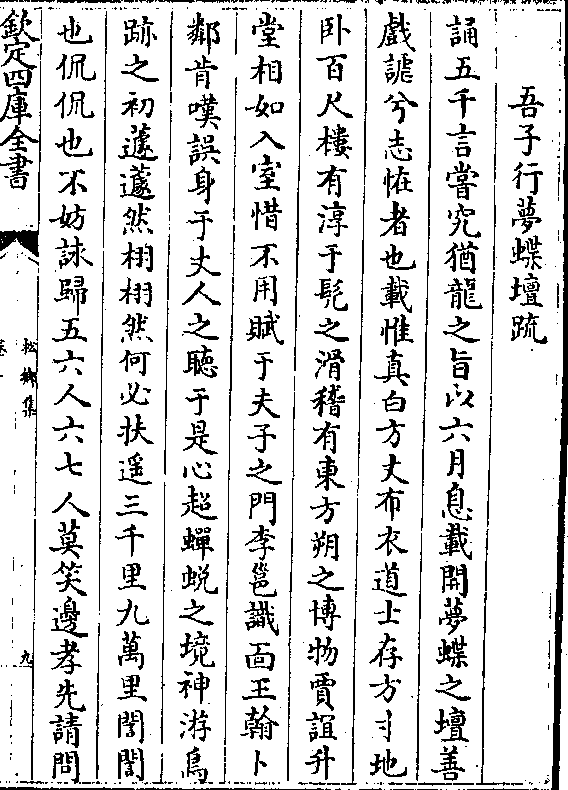 吾子行夢蝶壇䟽
誦五千言嘗究猶龍之旨以六月息載開夢蝶之壇善
戲謔兮志恠者也載惟真白方丈布衣道士存方寸地
卧百尺樓有淳于髠之滑稽有東方朔之博物賈誼升
堂相如入室惜不用賦于夫子之門李邕識面王翰卜
鄰肯嘆誤身于丈人之聽于是心超蟬蛻之境神游鳥
跡之初蘧蘧然栩栩然何必扶遥三千里九萬里誾誾
也侃侃也不妨詠歸五六人六七人莫笑邊孝先請問
欽定四庫全書
松鄉集
卷
九